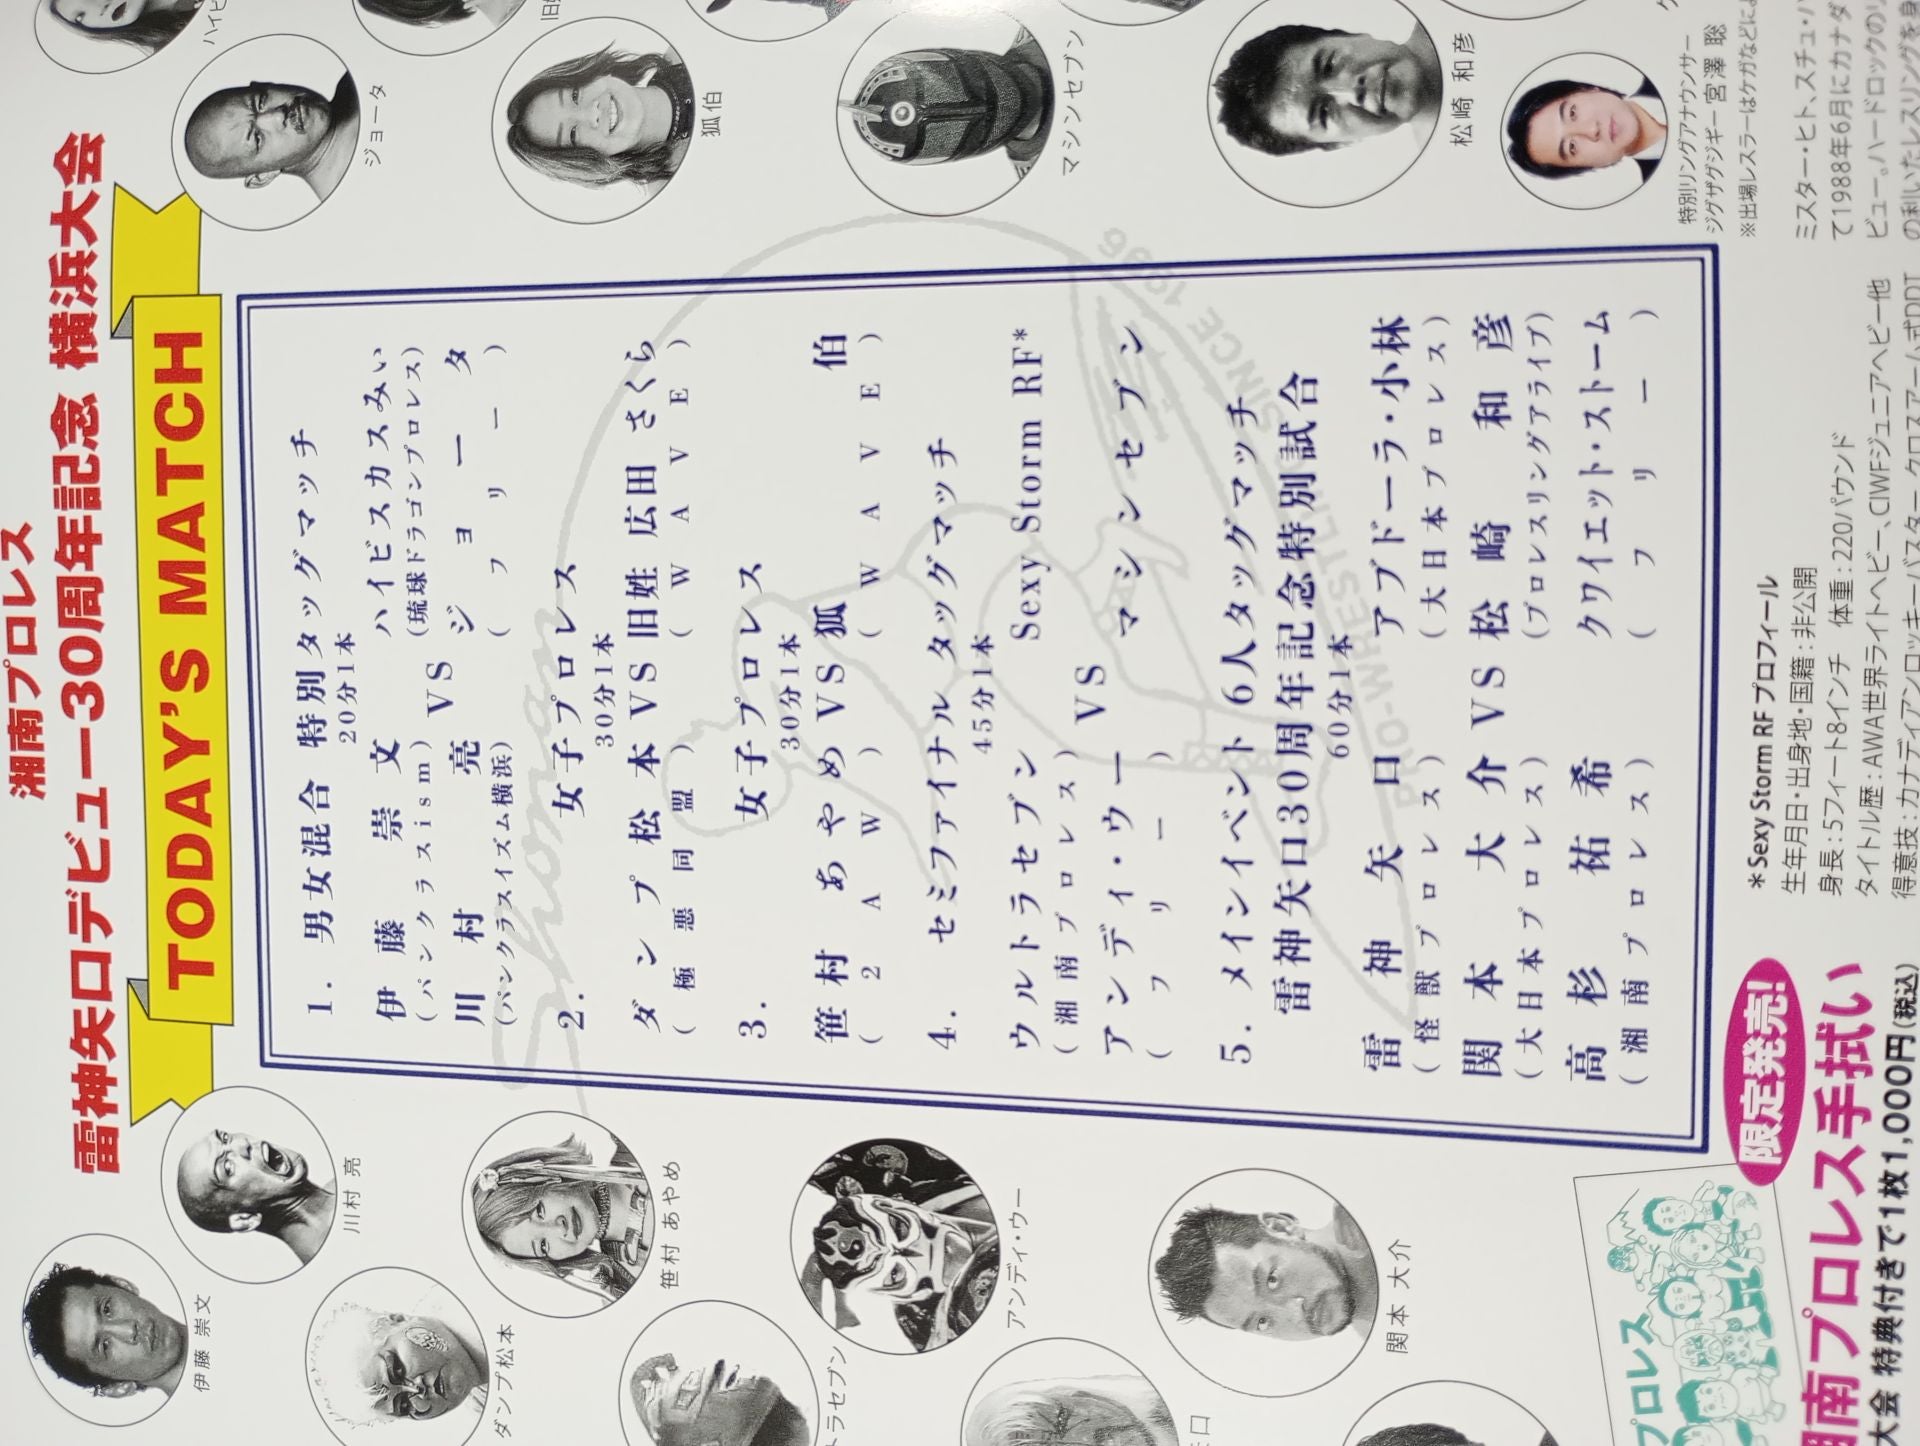 湘南プロレス
雷神矢口デビュー30周年記念 横浜大会
TODAY'S MATCH
1. 男女混合 特別タッグマッチ
20分1本
伊藤 崇文
(パンクラスism)
川村 亮
(パンクラスイズム横浜)
VS
ハイビスカスみぃ
(琉球ドラゴンプロレス)
ジョータ
(フリー)
2. 女子プロレス
30分1本
ダンプ松本 VS 旧姓 広田 さくら
(極悪同盟) (WAVE)
3. 女子プロレス
30分1本
笹村 あやめ VS 狐伯
(2AW) (WAVE)
4. セミファイナル タッグマッチ
45分1本
ウルトラセブン
(湘南プロレス)
アンディ・ウー
(フリー)
VS
Sexy Storm RF*
マシンセブン
5. メインイベント 6人タッグマッチ
雷神矢口30周年記念特別試合
60分1本
雷神矢口
(怪獣プロレス)
関本大介
(大日本プロレス)
高杉祐希
(湘南プロレス)
VS
アブドーラ・小林
(大日本プロレス)
松崎和彦
(プロレスリングアライブ)
クワイエット・ストーム
(フリー)
Shonan
PRO-WRESTLING SINCE 1996
伊藤 崇文
川村 亮
ダンプ松本
笹村 あやめ
トラセブン
アンディ・ウー
関本 大介
ハイビ
ジョータ
狐伯
マシンセブン
松崎 和彦
特別リングアナウンサー
ジグザグジギー 宮澤 聡
※出場レスラーはケガなどによ
*Sexy Storm RF プロフィール
生年月日・出身地・国籍:非公開
身長:5フィート8インチ 体重:220パウンド
タイトル歴:AWA世界ライトヘビー、CIWFジュニアヘビー他
得意技:カナディアンロッキーバスター、クロスアーム式DDT
ミスター・ヒト、スチュ・ハ
て1988年6月にカナダ
ビュー。ハードロックのリ
の利いたレスリングを身
限定発売!
湘南プロレス手拭い
大会 特典付きで1枚1,000円(税込)
プロレス